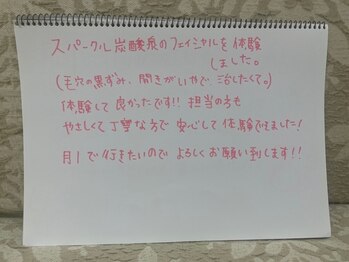 スパークル炭酸泉のフェイシャルを体験
しました。
(毛穴の黒ずみ、開きがいやで治したくて。)
体験して良かったです!! 担当の方も
やさしくて丁寧な方で安心して体験できました!
月1で行きたいのでよろしくお願い致します!!